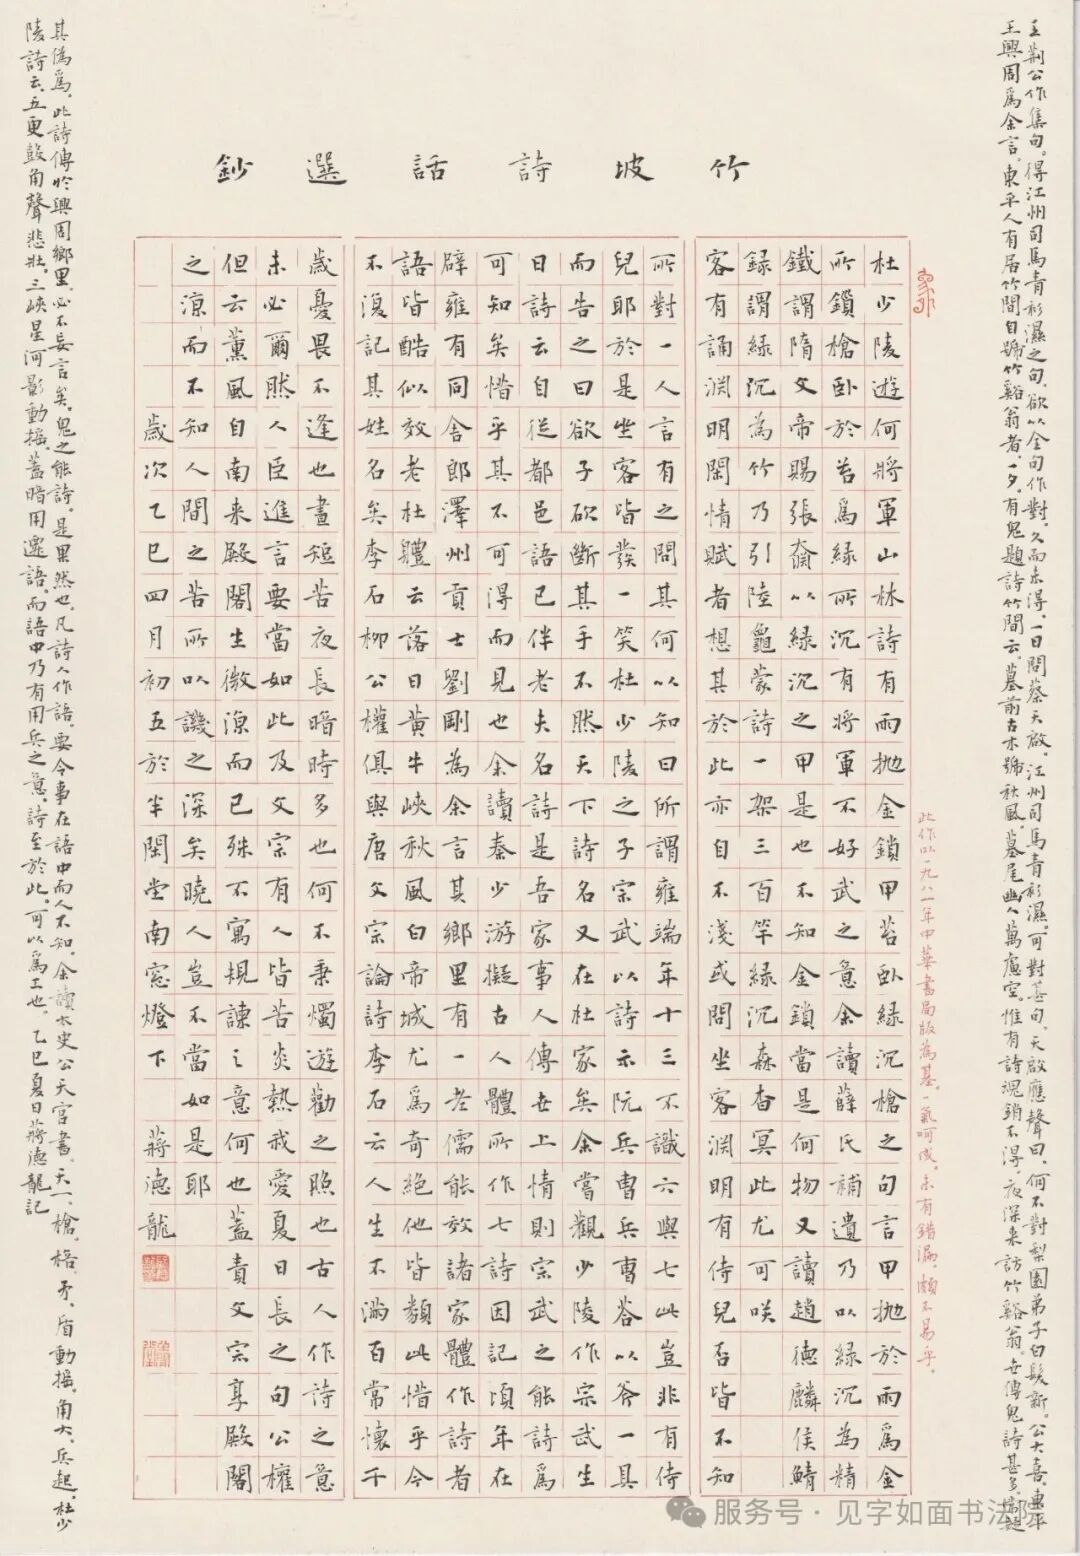 竹坡詩話選鈔
杜少陵遊何將軍山林詩有雨拋金鎖甲苔臥綠沉槍之句言甲拋於雨爲金
所鎖槍臥於苔爲綠所沉有將軍不好武之意余讀薛氏補遺乃以綠沉為精
鐵謂隋文帝賜張奫以綠沉之甲是也不知金鎖當是何物又讀趙德麟侯鯖
録謂綠沉為竹乃引陸龜蒙詩一架三百竿綠沉森杳冥此尤可咲
客有誦淵明閑情賦者想其於此亦自不淺或問坐客淵明有侍兒否皆不知
所對一人言有之問其何以知曰所謂雍端年十三不識六與七此豈非有侍
兒耶於是坐客皆發一笑杜少陵之子宗武以詩示阮兵曹兵曹荅以斧一具
而告之曰欲子砍斷其手不然天下詩名又在杜家矣余嘗觀少陵作宗武生
日詩云自從都邑語已伴老夫名詩是吾家事人傳世上情則宗武之能詩爲
可知矣惜乎其不可得而見也余讀秦少游擬古人體所作七詩因記頃年在
辟雍有同舍郎澤州貢士劉剛為余言其鄉里有一老儒能效諸家體作詩者
語皆酷似效老杜體云落日黃牛峽秋風白帝城尤爲奇絕他皆類此惜乎今
不復記其姓名矣李石柳公權俱與唐文宗論詩李石云人生不滿百常懷千
歲憂畏不逢也晝短苦夜長暗時多也何不秉燭遊勸之照也古人作詩之意
未必爾然人臣進言要當如此及文宗有人皆苦炎熱我愛夏日長之句公權
但云薰風自南来殿閣生微涼而已殊不寓規諫之意何也蓋責文宗享殿閣
之涼而不知人間之苦所以譏之深矣曉人豈不當如是耶
歲次乙巳四月初五於半閑堂南窓燈下 蔣德龍
此作以一九八一年中華書局版為基。一氣呵成。未有錯漏。頗不易乎。
王荆公作集句。得江州司馬青衫濕之句。欲以全句作對。久而未得。一日問蔡天啟。江州司馬青衫濕。可對甚句。天啟應聲曰。何不對梨園弟子白髮新。公大喜。東平
王興周爲余言。東平人有居竹間自號竹谿翁者。一夕。有鬼題詩竹間云。墓前古木號秋風。墓尾幽人萬慮空。惟有詩魂銷不得。夜深来訪竹谿翁。世傳鬼詩甚多。常疑
其偽爲。此詩傳於興周鄉里。必不妄言矣。鬼之能詩。是果然也。凡詩人作語。要令事在語中而人不知。余讀太史公天官書。天一。槍。棓。矛。盾動摇。角大。兵起。杜少
陵詩云。五更鼓角聲悲壯。三峽星河影動摇。蓋暗用遷語。而語中乃有用兵之意。詩至於此。可以爲工也。 乙巳夏日蔣德龍記
服务号·见字如面书法院